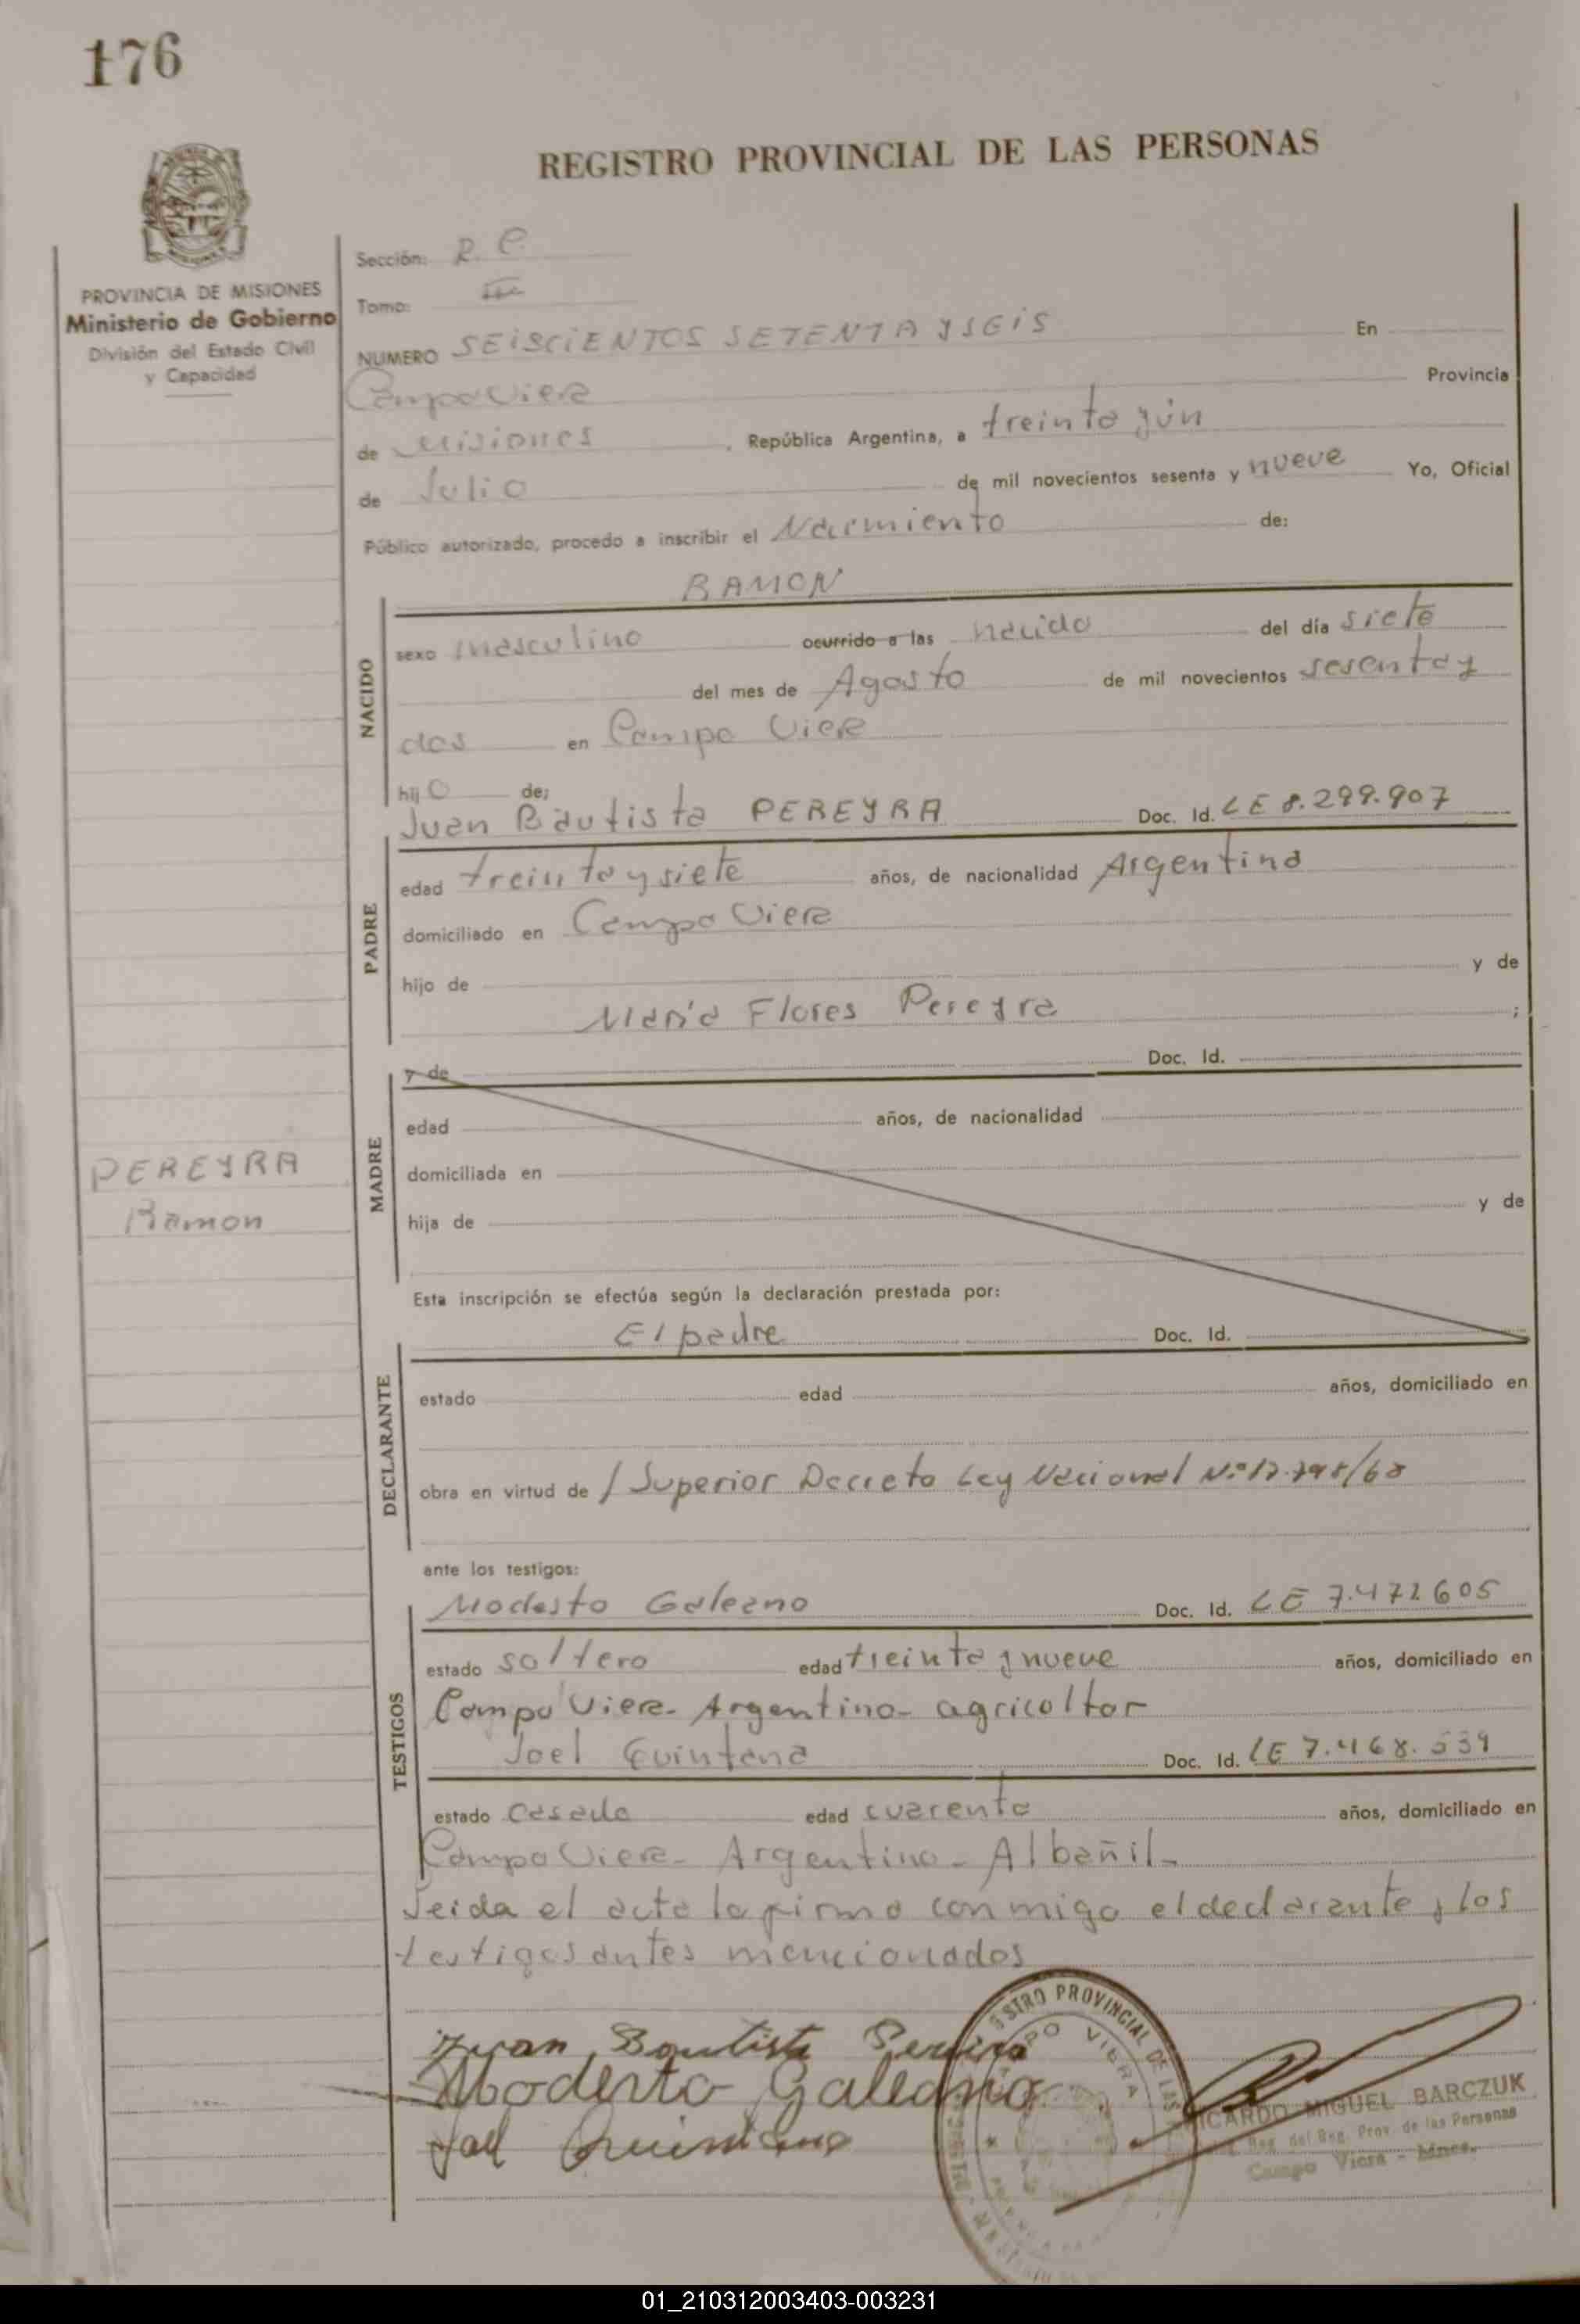 176
REGISTRO PROVINCIAL DE LAS PERSONAS
PROVINCIA DE MISIONES
Ministerio de Gobierno
División del Estado Civil
y Capacidad
Sección: R. C
Tomo: III
NUMERO SEISCIENTOS SETENTA Y SEIS En
Campo Viera Provincia
de Misiones , República Argentina, a treinta y ún
de Julio de mil novecientos sesenta y nueve Yo, Oficial
Público autorizado, procedo a inscribir el Nacimiento de:
RAMON
NACIDO
sexo masculino ocurrido a las nacido del día siete
del mes de Agosto de mil novecientos sesenta y
dos en Campo Viera
hijo de:
Juan Bautista PEREYRA Doc. Id. LE 8.299.907
PADRE
edad treinta y siete años, de nacionalidad Argentina
domiciliado en Campo Viera
hijo de y de
Maria Flores Pereyra ;
y de Doc. Id.
MADRE
edad años, de nacionalidad
domiciliada en
hija de y de
PEREYRA
Ramon
Esta inscripción se efectúa según la declaración prestada por:
El padre Doc. Id.
DECLARANTE
estado edad años, domiciliado en
obra en virtud de / Superior Decreto Ley Nacional
ante los testigos:
Modesto Galeano Doc. Id. LE 7.472605
TESTIGOS
estado soltero edad treinta y nueve años, domiciliado en
Campo Viera- Argentino- agricoltor
Joel Quintana Doc. Id. LE 7.468.539
estado casado edad cuarenta años, domiciliado en
Campo Viera- Argentino- Albañil-
Leida el acta la firma conmigo el declarante y los
testigos antes mencionados
Juan Bautista Pereira
Modesto Galeano
Joel Quintana
REGISTRO PROVINCIAL DE LAS
CAMPO VIERA
RICARDO MIGUEL BARCZUK
del Reg. Prov. de las Personas
Campo Viera - Mnes.
01_210312003403-003231